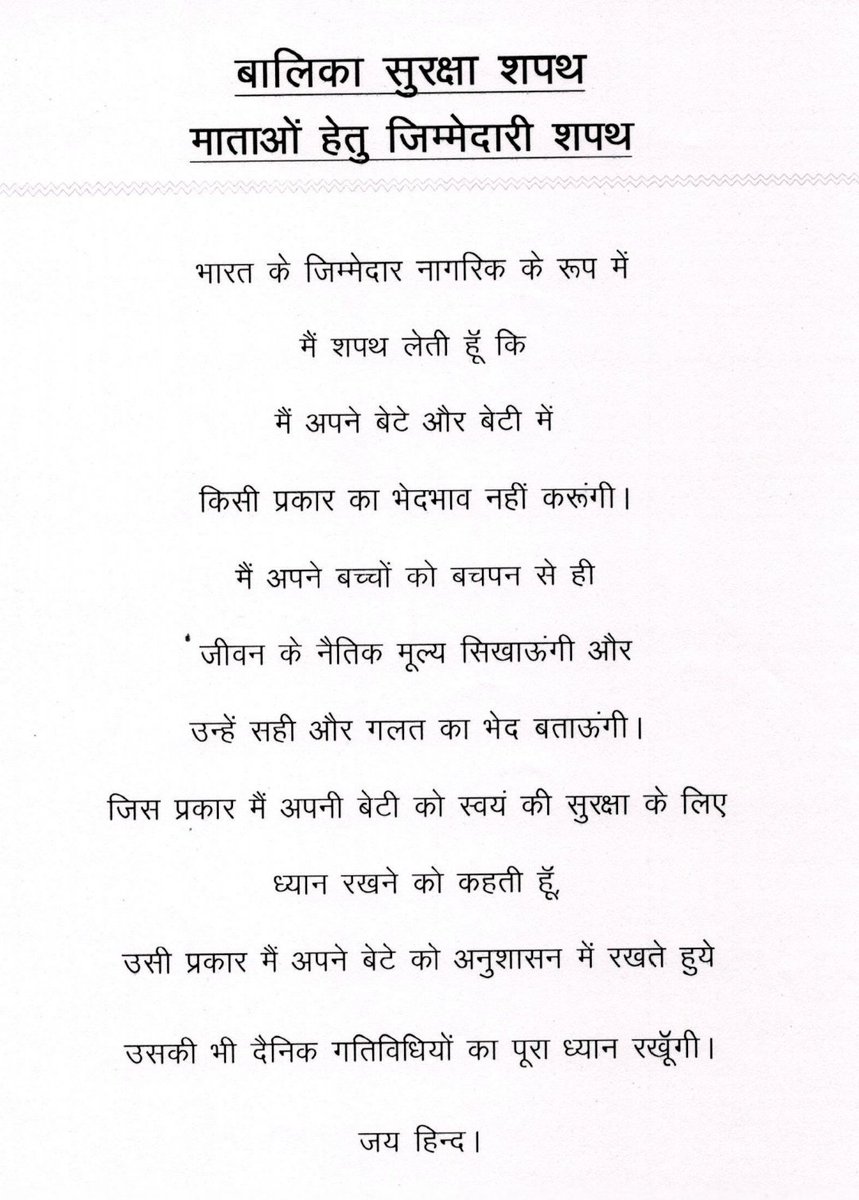 बालिका सुरक्षा शपथ
माताओं हेतु जिम्मेदारी शपथ
भारत के जिम्मेदार नागरिक के रूप में
मैं शपथ लेती हूॅं कि
मैं अपने बेटे और बेटी में
किसी प्रकार का भेदभाव नहीं करूंगी।
मैं अपने बच्चों को बचपन से ही
जीवन के नैतिक मूल्य सिखाऊंगी और
उन्हें सही और गलत का भेद बताऊंगी।
जिस प्रकार मैं अपनी बेटी को स्वयं की सुरक्षा के लिए
ध्यान रखने को कहती हूॅं,
उसी प्रकार मैं अपने बेटे को अनुशासन में रखते हुये
उसकी भी दैनिक गतिविधियों का पूरा ध्यान रखूॅंगी।
जय हिन्द।